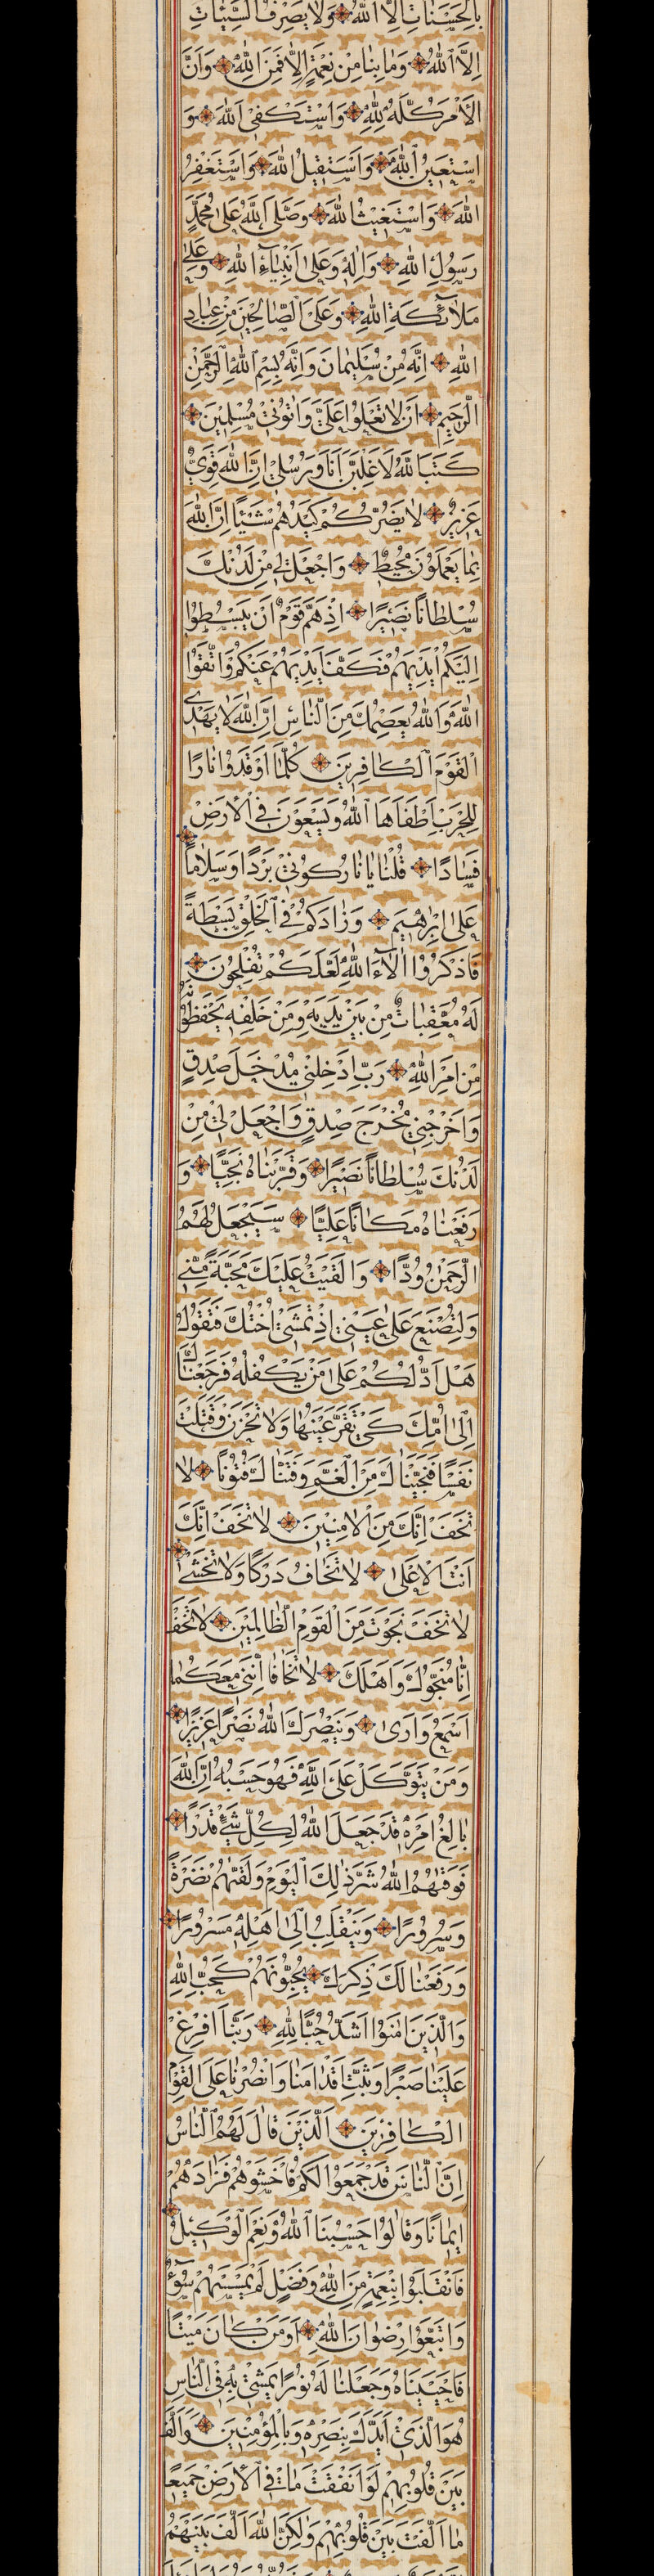 بِالْحَسَنَاتِ اِلَّا اللّٰهُ وَلَا يَصْرِفُ السَّيِّئَاتِ
اِلَّا اللّٰهُ وَمَا بِنَا مِنْ نِعْمَةٍ اِلَّا فَمِنَ اللّٰهِ وَاَنَّ
الْاَمْرَ كُلَّهُ لِلّٰهِ وَاَسْتَكْفِى اللّٰهَ وَ
اَسْتَعِينُ اللّٰهَ وَاَسْتَقِيلُ اللّٰهَ وَاَسْتَغْفِرُ
اللّٰهَ وَاَسْتَغِيثُ اللّٰهَ وَصَلَّى اللّٰهُ عَلٰى مُحَمَّدٍ
رَسُولِ اللّٰهِ وَاٰلِهِ وَعَلٰى اَنْبِيَاءِ اللّٰهِ وَعَلٰى
مَلَائِكَةِ اللّٰهِ وَعَلَى الصَّالِحِينَ مِنْ عِبَادِ
اللّٰهِ اِنَّهُ مِنْ سُلَيْمَانَ وَاِنَّهُ بِسْمِ اللّٰهِ الرَّحْمٰنِ
الرَّحِيمِ اَنْ لَا تَعْلُوا عَلَيَّ وَاْتُونِي مُسْلِمِينَ
كَتَبَ اللّٰهُ لَاَغْلِبَنَّ اَنَا وَرُسُلِي اِنَّ اللّٰهَ قَوِيٌّ
عَزِيزٌ لَا يَضُرُّكُمْ كَيْدُهُمْ شَيْئًا اِنَّ اللّٰهَ
بِمَا يَعْمَلُونَ مُحِيطٌ وَاجْعَلْ لِي مِنْ لَدُنْكَ
سُلْطَانًا نَصِيرًا اِذْ هَمَّ قَوْمٌ اَنْ يَبْسُطُوا
اِلَيْكُمْ اَيْدِيَهُمْ فَكَفَّ اَيْدِيَهُمْ عَنْكُمْ وَاتَّقُوا
اللّٰهَ وَاللّٰهُ يَعْصِمُكَ مِنَ النَّاسِ اِنَّ اللّٰهَ لَا يَهْدِي
الْقَوْمَ الْكَافِرِينَ كُلَّمَا اَوْقَدُوا نَارًا
لِلْحَرْبِ اَطْفَاَهَا اللّٰهُ وَيَسْعَوْنَ فِي الْاَرْضِ
فَسَادًا قُلْنَا يَا نَارُ كُونِي بَرْدًا وَسَلَامًا
عَلٰى اِبْرٰهِيمَ وَزَادَكُمْ فِي الْخَلْقِ بَسْطَةً
فَاذْكُرُوا اٰلَاءَ اللّٰهِ لَعَلَّكُمْ تُفْلِحُونَ
لَهُ مُعَقِّبَاتٌ مِنْ بَيْنِ يَدَيْهِ وَمِنْ خَلْفِهِ يَحْفَظُونَهُ
مِنْ اَمْرِ اللّٰهِ رَبِّ اَدْخِلْنِي مُدْخَلَ صِدْقٍ
وَاَخْرِجْنِي مُخْرَجَ صِدْقٍ وَاجْعَلْ لِي مِنْ
لَدُنْكَ سُلْطَانًا نَصِيرًا وَقَرَّبْنَاهُ نَجِيًّا وَ
رَفَعْنَاهُ مَكَانًا عَلِيًّا سَيَجْعَلُ لَهُمُ
الرَّحْمٰنُ وُدًّا وَاَلْقَيْتُ عَلَيْكَ مَحَبَّةً مِنِّي
وَلِتُصْنَعَ عَلٰى عَيْنِي اِذْ تَمْشِي اُخْتُكَ فَتَقُولُ
هَلْ اَدُلُّكُمْ عَلٰى مَنْ يَكْفُلُهُ فَرَجَعْنَاكَ
اِلٰى اُمِّكَ كَيْ تَقَرَّ عَيْنُهَا وَلَا تَحْزَنَ وَقَتَلْتَ
نَفْسًا فَنَجَّيْنَاكَ مِنَ الْغَمِّ وَفَتَنَّاكَ فُتُونًا لَا
تَخَفْ اِنَّكَ مِنَ الْاٰمِنِينَ لَا تَخَفْ اِنَّكَ
اَنْتَ الْاَعْلٰى لَا تَخَافُ دَرَكًا وَلَا تَخْشٰى
لَا تَخَفْ نَجَوْتَ مِنَ الْقَوْمِ الظَّالِمِينَ لَا تَخَفْ
اِنَّا مُنَجُّوكَ وَاَهْلَكَ لَا تَخَافَا اِنَّنِي مَعَكُمَا
اَسْمَعُ وَاَرٰى وَيَنْصُرَكَ اللّٰهُ نَصْرًا عَزِيزًا
وَمَنْ يَتَوَكَّلْ عَلَى اللّٰهِ فَهُوَ حَسْبُهُ اِنَّ اللّٰهَ
بَالِغُ اَمْرِهِ قَدْ جَعَلَ اللّٰهُ لِكُلِّ شَيْءٍ قَدْرًا
فَوَقٰيهُمُ اللّٰهُ شَرَّ ذٰلِكَ الْيَوْمِ وَلَقّٰيهُمْ نَضْرَةً
وَسُرُورًا وَيَنْقَلِبُ اِلٰى اَهْلِهِ مَسْرُورًا
وَرَفَعْنَا لَكَ ذِكْرَكَ يُحِبُّونَهُمْ كَحُبِّ اللّٰهِ
وَالَّذِينَ اٰمَنُوا اَشَدُّ حُبًّا لِلّٰهِ رَبَّنَا اَفْرِغْ
عَلَيْنَا صَبْرًا وَثَبِّتْ اَقْدَامَنَا وَانْصُرْنَا عَلَى الْقَوْمِ
الْكَافِرِينَ اَلَّذِينَ قَالَ لَهُمُ النَّاسُ
اِنَّ النَّاسَ قَدْ جَمَعُوا لَكُمْ فَاخْشَوْهُمْ فَزَادَهُمْ
اِيمَانًا وَقَالُوا حَسْبُنَا اللّٰهُ وَنِعْمَ الْوَكِيلُ
فَانْقَلَبُوا بِنِعْمَةٍ مِنَ اللّٰهِ وَفَضْلٍ لَمْ يَمْسَسْهُمْ سُوءٌ
وَاتَّبَعُوا رِضْوَانَ اللّٰهِ اَوَمَنْ كَانَ مَيْتًا
فَاَحْيَيْنَاهُ وَجَعَلْنَا لَهُ نُورًا يَمْشِي بِهِ فِي النَّاسِ
هُوَ الَّذِي اَيَّدَكَ بِنَصْرِهِ وَبِالْمُؤْمِنِينَ وَاَلَّفَ
بَيْنَ قُلُوبِهِمْ لَوْ اَنْفَقْتَ مَا فِي الْاَرْضِ جَمِيعًا
مَا اَلَّفْتَ بَيْنَ قُلُوبِهِمْ وَلٰكِنَّ اللّٰهَ اَلَّفَ بَيْنَهُمْ